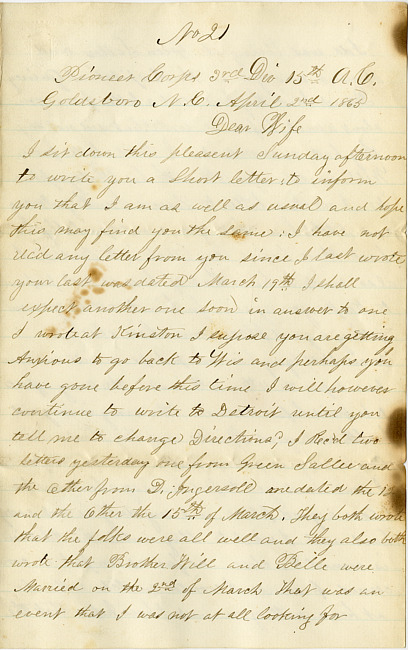 No 21
Pioneer Corps 3rd Div 15th A.C.
Goldsboro N.C. April 2nd 1865
Dear Wife
I sit down this pleasent Sunday afternoon
to write you a Short letter to inform
you that I am as well as usual and hope
this may find you the same: I have not
rec'd any letter from you since I last wrote
your last was dated March 19th I shall
expect another one soon in answer to one
I wrote at Kinston I supose you are getting
Anxious to go back to Wis and perhaps you
have gone before this time I will however
continue to write to Detroit until you
tell me to change Directions, I Rec'd two
letters yesterday one from Green Salter and
the Other from D. Ingersoll one dated the
and the Other the 15th of March, They both wrote
that the folks were all well and they also both
wrote that Brother Will and Belle were
Married on the 2nd of March That was an
event that I was not at all looking for